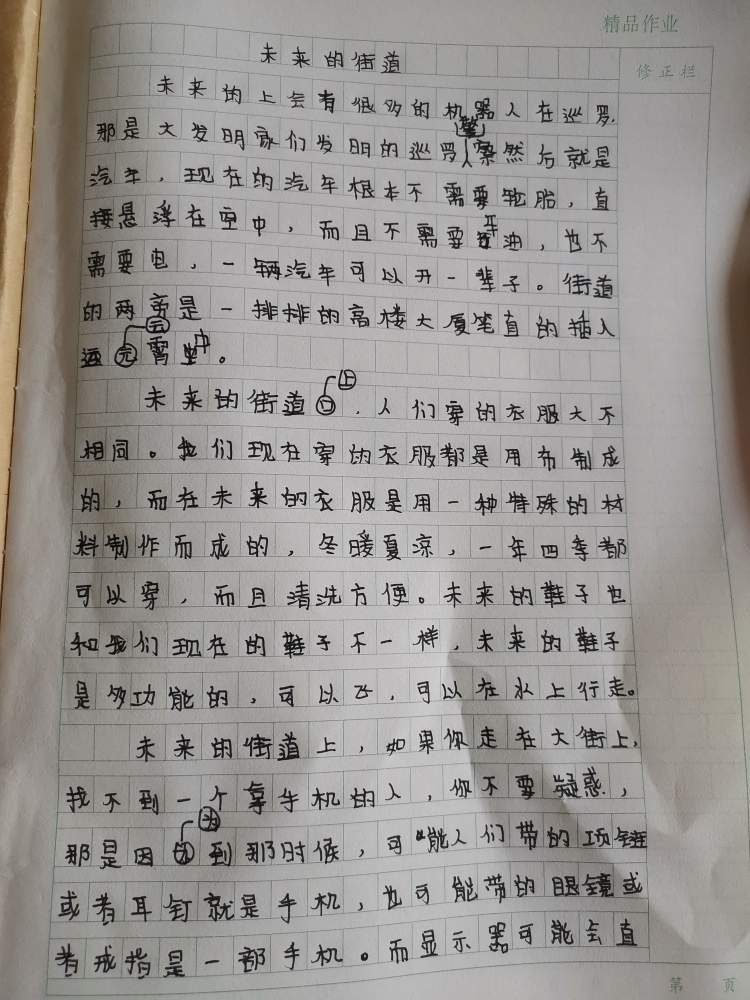 精品作业
修正栏
未来的街道
未来的上会有很多的机器人在巡罗,
那是大发明家们发明的巡罗人警察然后就是
汽车，现在的汽车根本不需要轮胎，直
接悬浮在空中，而且不需要汽油，也不
需要电，一辆汽车可以开一辈子。街道
的两旁是一排排的高楼大厦笔直的插入
云霄中。
未来的街道上，人们穿的衣服大不
相同。我们现在穿的衣服都是用布制成
的，而在未来的衣服是用一种特殊的材
料制作而成的，冬暖夏凉，一年四季都
可以穿，而且清洗方便。未来的鞋子也
和我们现在的鞋子不一样，未来的鞋子
是多功能的，可以飞，可以在水上行走。
未来的街道上，如果你走在大街上，
找不到一个拿手机的人，你不要疑惑，
那是因为到那时候，可能人们带的项链
或者耳钉就是手机，也可能带的眼镜或
者戒指是一部手机。而显示器可能会直
第 页